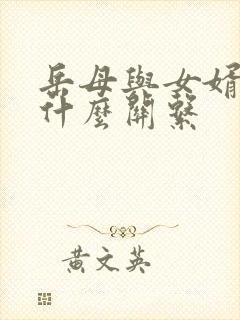 岳母與女婿
什麼關繫
黃文英